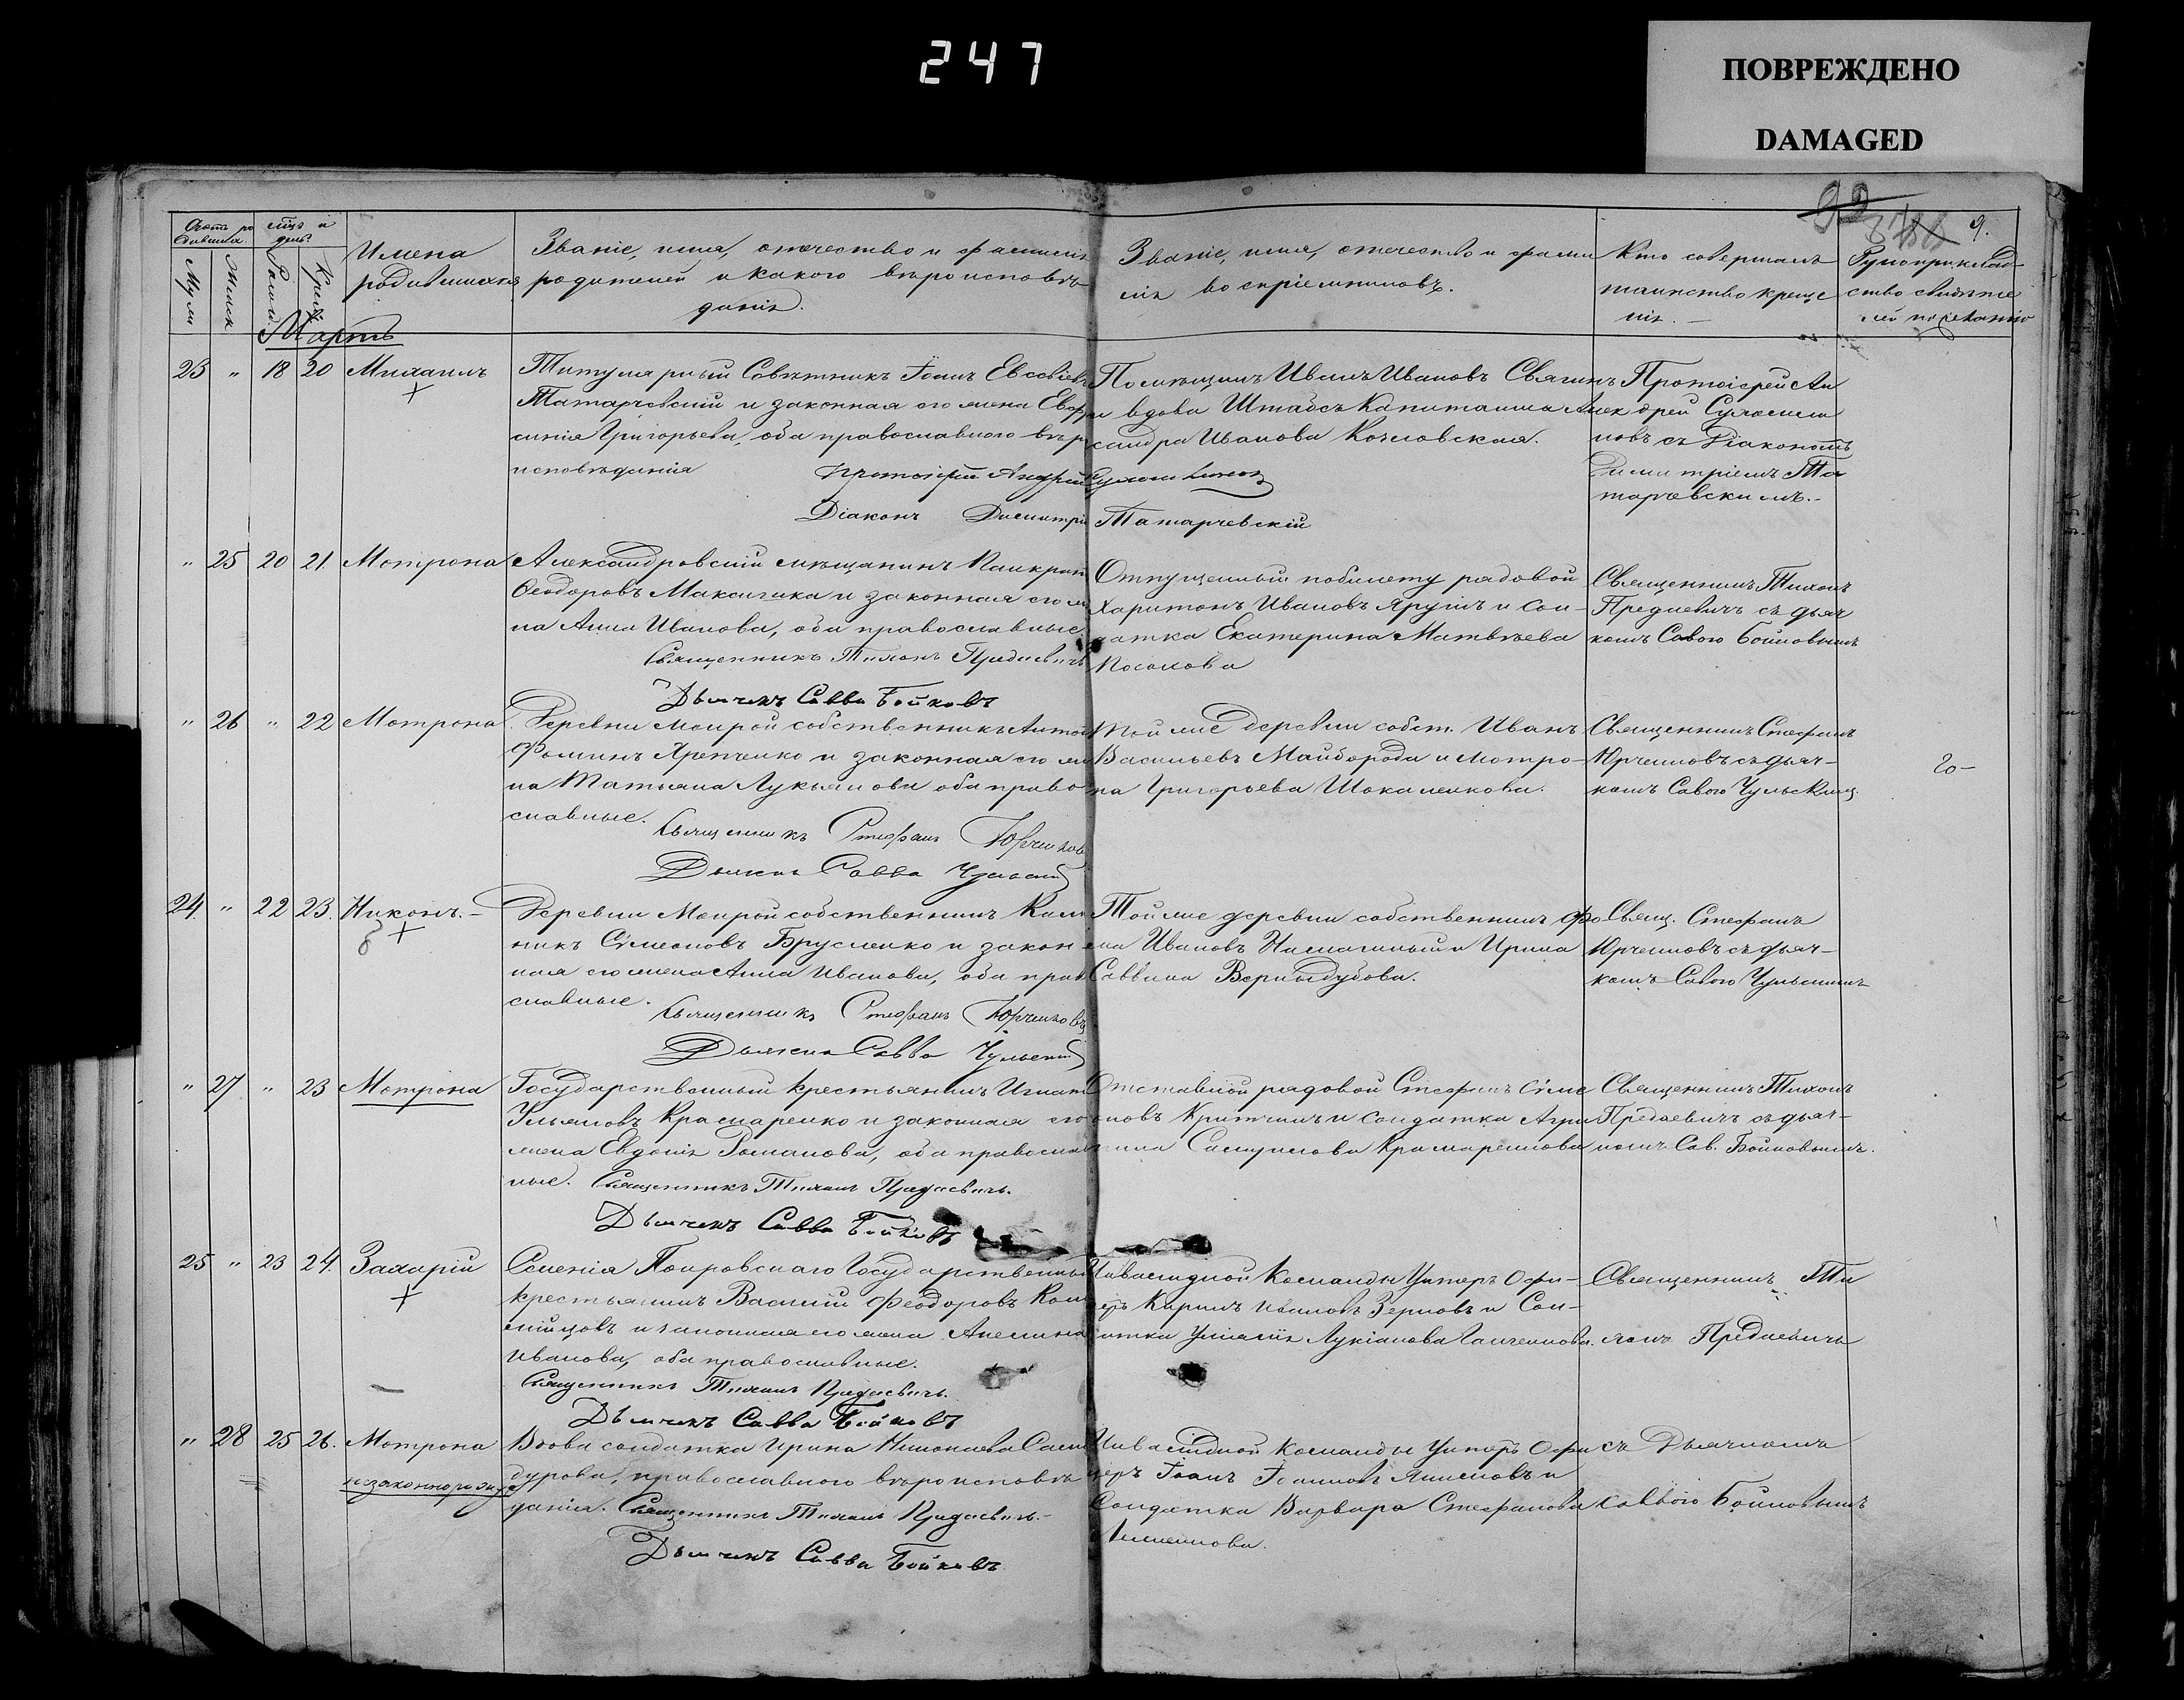 247
ПОВРЕЖДЕНО
DAMAGED
92
9.
Счетъ родившихся
Муж.
Женск.
мѣсяцъ и день
Рожд.
Крещ.
Имена родившихся
Званіе, имя, отечество и фамилія
родителей и какого вѣроисповѣ-
данія.
Званіе, имя, отечество и фами
лія воспріемниковъ.
Кто совершалъ
таинство креще
нія.
Рукоприклад-
ство свидѣте
лей по желанію
Мартъ
23 " 18 20 Михаилъ
Титулярный Совѣтникъ Іоаннъ Евсевіевъ
Татарчевскій и законная его жена Евфро
синія Григорьева, оба православнаго вѣро
исповѣданія
Протоіерей Андрей
Діаконъ Димитрій Татарчевскій
Помѣщикъ Иванъ Ивановъ Свягинъ
и вдова Штабсъ Капитанша Алек
сандра Иванова Козловская.
Протоіерей Ан
дрей
новъ съ Діакономъ
Димитріемъ Та
тарчевскимъ.-
" 25 20 21. Мотрона
Александровскій мѣщанинъ Панкратъ
Ѳеодоровъ и законная его же
на Анна Иванова, оба православные.
Священникъ Тихонъ Предаевичъ
Дьячекъ Савва Бойковъ
Отпущенный по билету рядовой
Харитонъ Ивановъ и сол-
датка Екатерина Матвѣева
Священникъ Тихонъ
Предаевичъ съ дьяч
комъ Савою Бойковымъ
" 26 " 22 Мотрона
Деревни Мокрой собственникъ Антонъ
Фоминъ и законная его же
на Татьяна Лукьянова оба право
славные.
Священникъ Стефанъ Юрченковъ
Дьячекъ Савва Чульскій
Той же деревни собст. Иванъ
Васильевъ Майборода и Мотро-
на Григорьева Шокаленкова.
Священникъ Стефанъ
Юрченковъ съ дьяч-
комъ Савою Чульским
24. " 22 23. Никонъ.-
Деревни Мокрой собственникъ Кали
никъ Сѵмеоновъ Брусленко и закон
ная его жена Анна Иванова, оба право
славные.
Священникъ Стефанъ Юрченковъ
Дьячекъ Савва Чульскій
Той же деревни собственникъ Фо
ма Ивановъ и Ирина
Саввина Верныдубова.
Свящ. Стефанъ
Юрченковъ съ дьяч-
комъ Савою Чульскимъ
" 27 " 23 Мотрона
Государственный крестьянинъ Игнатъ
Ульяновъ Крамаренко и законная его
жена Евдокія Романова, оба православ
ные. Священникъ Тихонъ Предаевичъ.
Дьячекъ Савва Бойковъ
Отставной рядовой Стефанъ Сѵме
оновъ и солдатка Агри
пина Самуилова Крамаренкова
Священникъ Тихонъ
Предаевичъ съ дьяч-
комъ Сав. Бойковымъ.
25 " 23 24. Захарій
Селенія Покровскаго Государственный
крестьянинъ Василій Ѳеодоровъ Коло
мійцовъ и законная его жена Акелина
Иванова, оба православные.
Священникъ Тихонъ Предаевичъ.
Дьячекъ Савва Бойковъ
Инвалидной команды Унтеръ Офи-
церъ Карпъ Ивановъ Зерновъ и Сол-
датка Уліанія Лукіанова
Священникъ Ти
хонъ Предаевичъ
" 28 25 26. Мотрона
незаконнорожд
Вдова солдатка Ирина Николаева Сам
дурова, православнаго вѣроисповѣ
данія. Священникъ Тихонъ Предаевичъ.-
Дьячекъ Савва Бойковъ
Инвалидной команды Унтеръ Офи
церъ Іоаннъ Іоанновъ Якименовъ и
Солдатка Варвара Стефанова
съ Дьячкомъ
Саввою Бойковымъ
20-